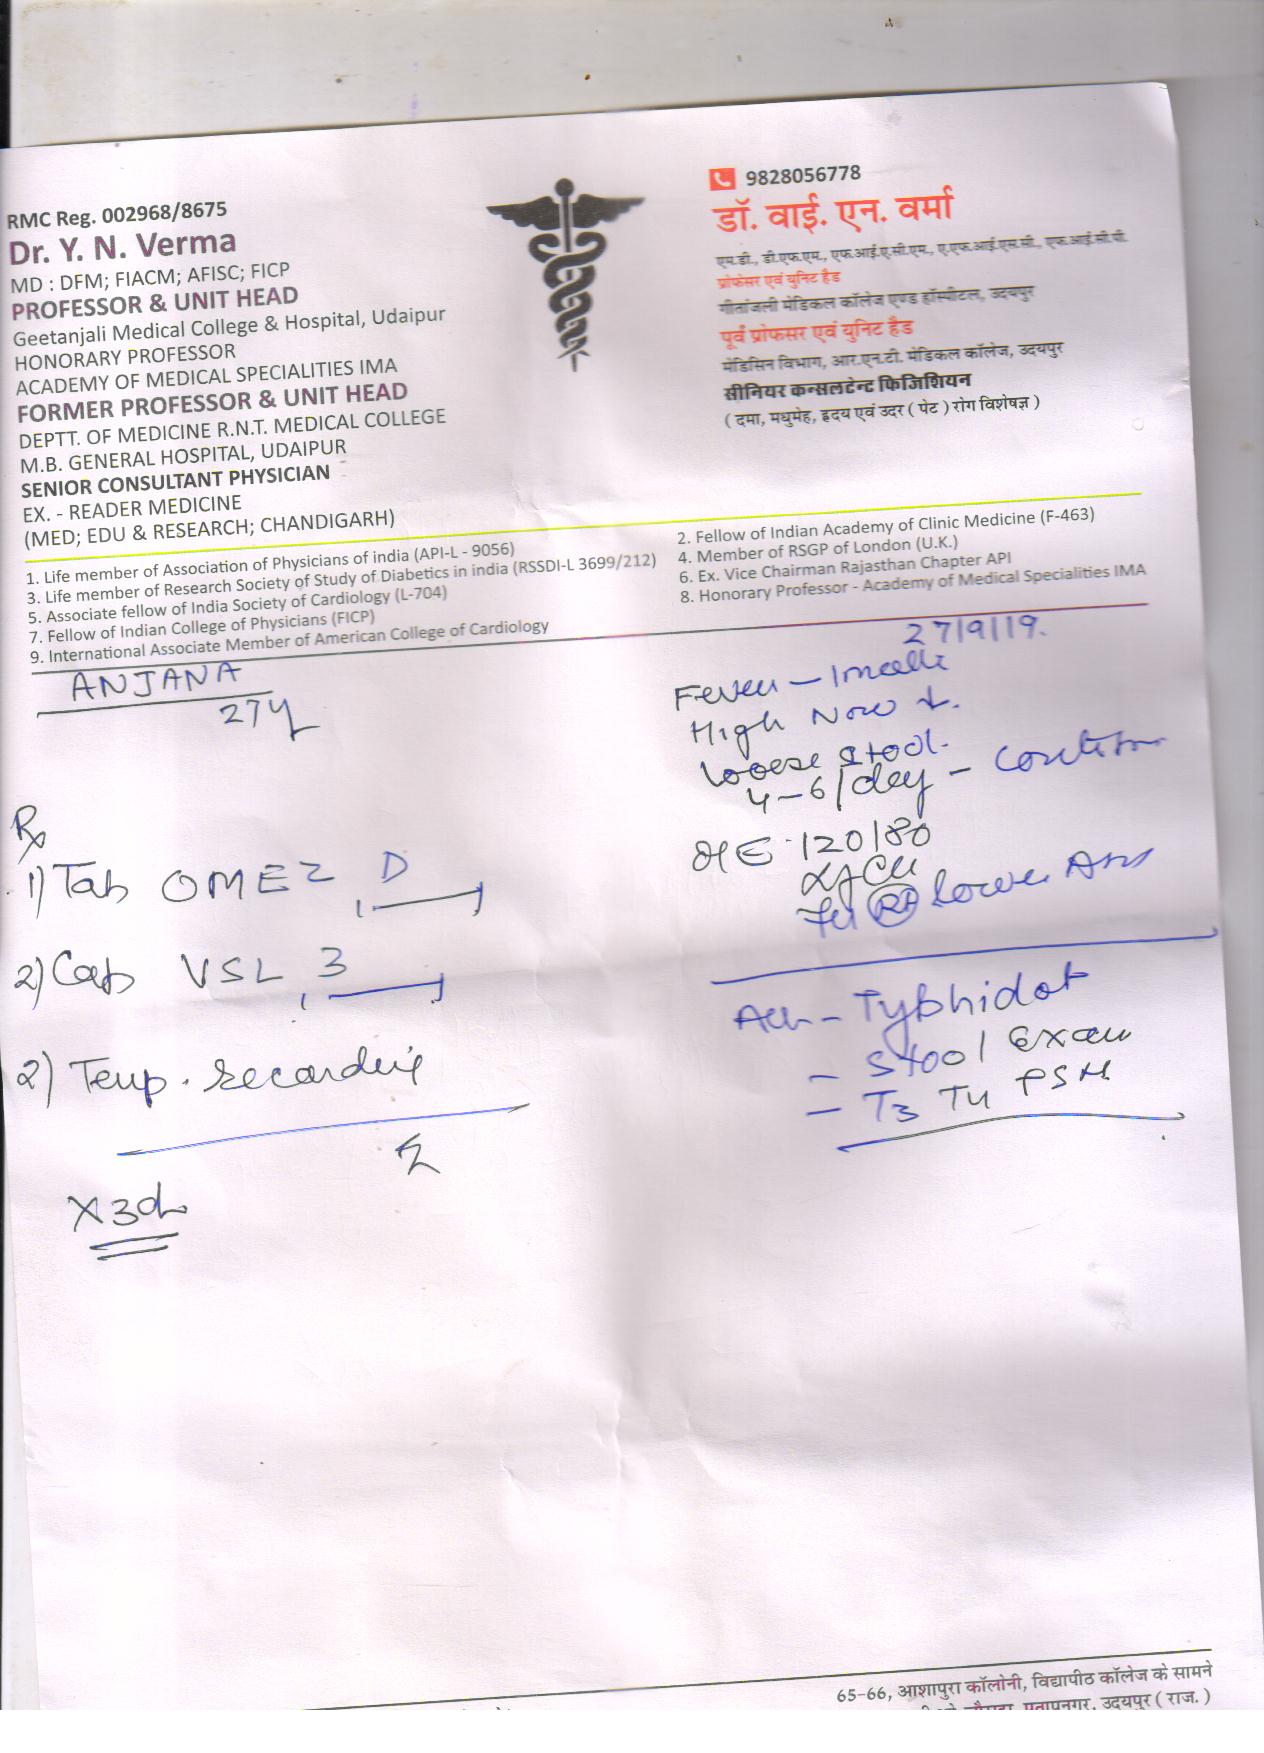 RMC Reg. 002968/8675
Dr. Y. N. Verma
MD : DFM; FIACM; AFISC; FICP
PROFESSOR & UNIT HEAD
Geetanjali Medical College & Hospital, Udaipur
HONORARY PROFESSOR
ACADEMY OF MEDICAL SPECIALITIES IMA
FORMER PROFESSOR & UNIT HEAD
DEPTT. OF MEDICINE R.N.T. MEDICAL COLLEGE
M.B. GENERAL HOSPITAL, UDAIPUR
SENIOR CONSULTANT PHYSICIAN
EX. - READER MEDICINE
(MED; EDU & RESEARCH; CHANDIGARH)
9828056778
डॉ. वाई. एन. वर्मा
एम.डी., डी.एफ.एम., एफ.आई.ए.सी.एम., ए.एफ.आई.एस.सी., एफ.आई.सी.पी.
प्रोफेसर एवं युनिट हैड
गीतांजली मेडिकल कॉलेज एण्ड हॉस्पीटल, उदयपुर
पूर्व प्रोफसर एवं युनिट हैड
मेडिसिन विभाग, आर.एन.टी. मेडिकल कॉलेज, उदयपुर
सीनियर कन्सलटेन्ट फिजिशियन
( दमा, मधुमेह, हृदय एवं उदर ( पेट ) रोग विशेषज्ञ )
1. Life member of Association of Physicians of india (API-L - 9056)
2. Fellow of Indian Academy of Clinic Medicine (F-463)
3. Life member of Research Society of Study of Diabetics in india (RSSDI-L 3699/212)
4. Member of RSGP of London (U.K.)
5. Associate fellow of India Society of Cardiology (L-704)
6. Ex. Vice Chairman Rajasthan Chapter API
7. Fellow of Indian College of Physicians (FICP)
8. Honorary Professor - Academy of Medical Specialities IMA
9. International Associate Member of American College of Cardiology
27/9/19.
ANJANA
27y
Fever -
High Now
loose stool.
4-6/day -
O/E - 120/80
lower
Adv - Typhidot
- Stool Exam
- T3 T4 TSH
Rx
1) Tab OMEZ D
2) Cap VSL 3
2) Temp. recording
x3d
65-66, आशापुरा कॉलोनी, विद्यापीठ कॉलेज के सामने
प्रतापनगर, उदयपुर ( राज. )